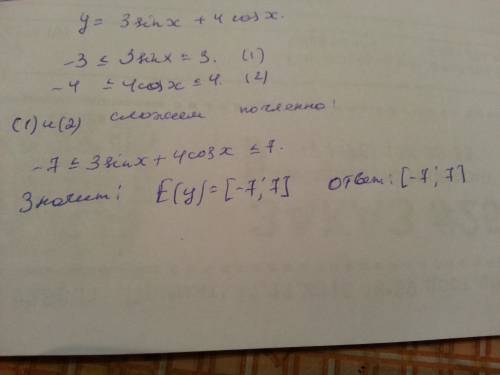 y = 3sinx + 4cosx.
-3 ≤ 3sinx ≤ 3. (1)
-4 ≤ 4cosx ≤ 4. (2)
(1) и (2) сложем почленно:
-7 ≤ 3sinx + 4cosx ≤ 7.
Значит: E(y) = [-7; 7] Ответ: [-7; 7]